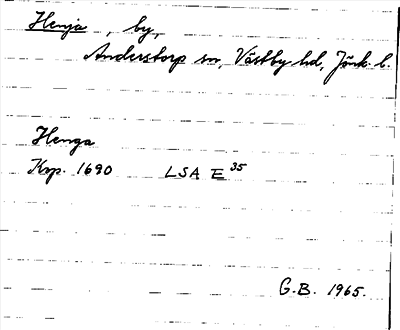 Henja, by,
Anderstorp sn, Västbo hd, Jönk. l.
Henga
Krp. 1690 LSA E 35
G.B. 1965.